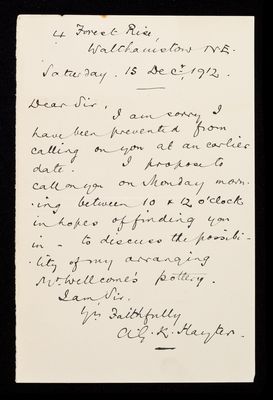 4 Forest Rise,
Walthamstow N.E.
Saturday. 15 Decr, 1912.
Dear Sir,
I am sorry I
have been prevented from
calling on you at an earlier
date. I propose to
call on you on Monday morn-
-ing between 10 & 12 o'clock
in hopes of finding you
in - to discuss the possibi-
-lity of my arranging
Mr Wellcome's pottery.
I am, Sir,
Yrs Faithfully
A.G.K. Hayter.